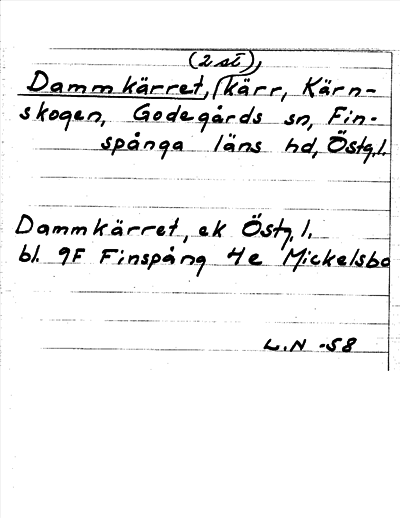 (2 st),
Dammkärret, kärr, Kärn-
skogen, Godegårds sn, Fin-
spånga läns hd, Östg.l.
Dammkärret, ek Östg.l.
bl. 9F Finspång 4e Mickelsbo
L.N -58